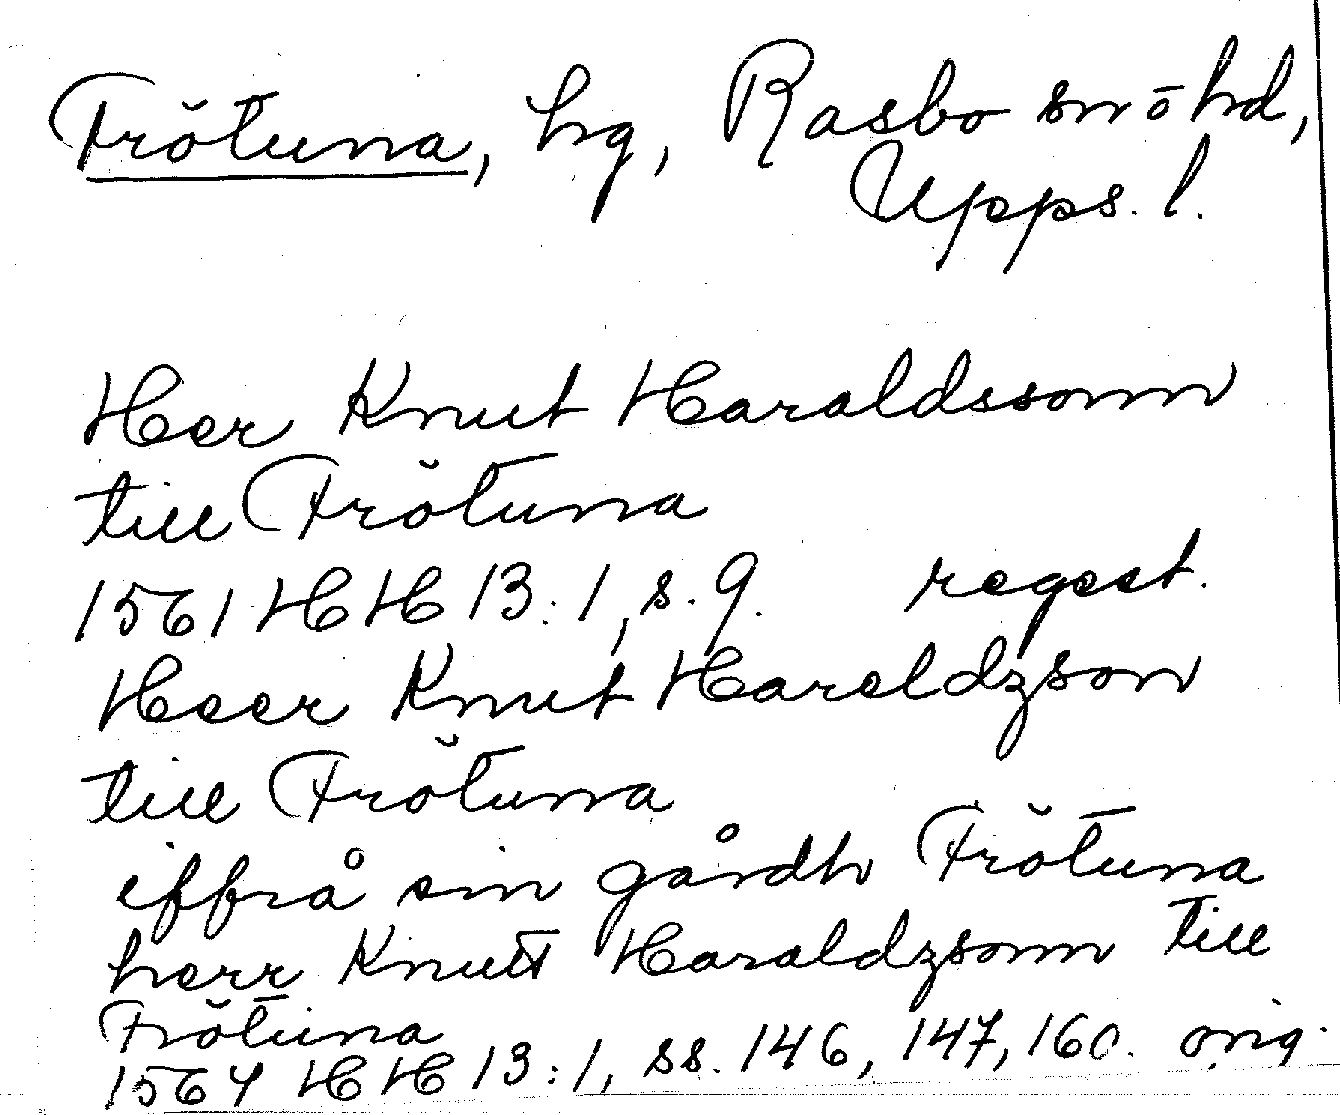 Frötuna, hg, Rasbo sn o hd,
Upps. l.
Heer Knut Haraldssonn
till Frötuna
1561 HH 13:1, s. 9. regest.
Heer Knut Hareldzson
till Frötuna
iffrå sin gårdh Frötuna
herr Knutt Haraldzsonn till
Frötuna
1564 HH 13:1, ss. 146, 147, 160. orig.